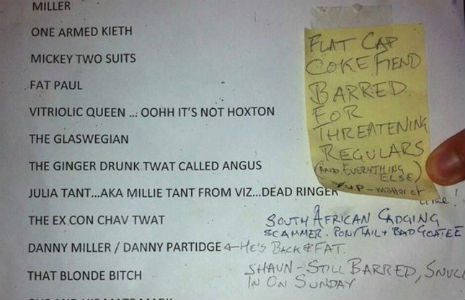 MILLER
ONE ARMED KIETH
MICKEY TWO SUITS
FAT PAUL
VITRIOLIC QUEEN ... OOHH IT'S NOT HOXTON
THE GLASWEGIAN
THE GINGER DRUNK TWAT CALLED ANGUS
JULIA TANT...AKA MILLIE TANT FROM VIZ...DEAD RINGER
THE EX CON CHAV TWAT
DANNY MILLER / DANNY PARTIDGE ← HE'S BACK & FAT.
THAT BLONDE BITCH
FLAT CAP
COKE FIEND
BARRED
FOR
THREATENING
REGULARS
(AND EVERYTHING
ELSE)
SOUTH AFRICAN CADGING
SCAMMER. PONYTAIL + BAD GOATEE
SHAUN - STILL BARRED, SNUC
IN ON SUNDAY